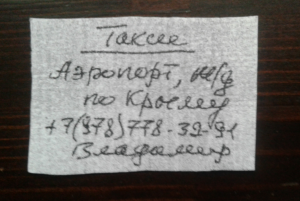 Такси
Аэропорт, ж/д
по Крыму
+7(978)778-39-91
Владимир